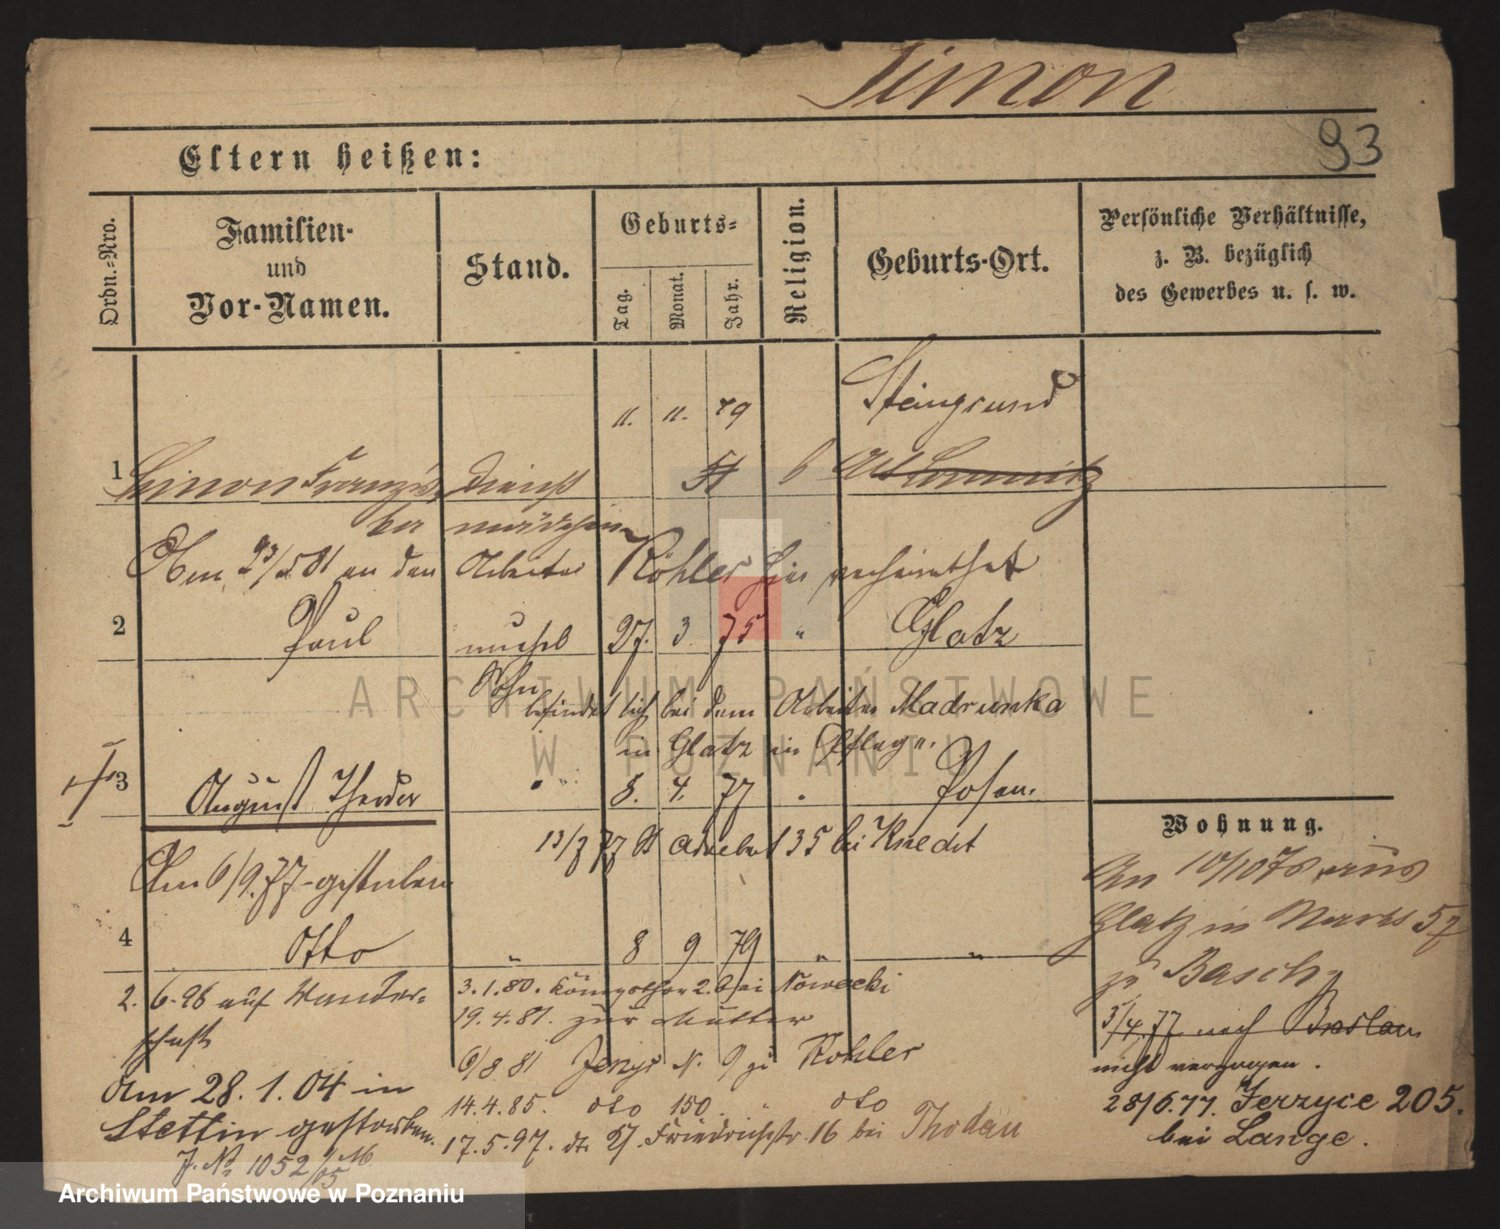 Simon
93
Eltern heißen:
Ordn.-Nro.
Familien-
und
Vor-Namen.
Stand.
Geburts-
Tag.
Monat.
Jahr.
Religion.
Geburts-Ort.
Persönliche Verhältnisse,
z. B. bezüglich
des Gewerbes u. s. w.
Steingrund
11. 11. 79
1 Simon Franzis Dienst 51 Alt Lomnitz
ka mädchen
Am 23/5 81 an den Arbeiter Köhler hier verheirathet
2 Paul unehel 27. 3 75 " Glatz
Sohn
befindet sich bei dem Arbeiter Madrunka
in Glatz in Pflege.
3 August Theodor " 8. 4. 77 " Posen.
13/7 77 135 bei Knecht
Am 6/9. 77 gestorben
4 Otto " 8 9 79 " "
2. 6.96 auf Wander-
schaft
Am 28.1.04 in
Stettin gestorben.
J. No 1052/05
3.1.80. Königsthor 2. bei Nowacki
19.4.81. zur Mutter
6/8 81 Jerzyc N. 9 zu Köhler
14.4.85. dto 150. dto
17.5.97. dt. 27 Friedrichstr. 16 bei Thodau
Wohnung.
Am 10/10 75 aus
Glatz in Markt 57
zu Basch
5/4.77 nach Breslau
nicht verzogen.
28/6.77. Jerzyce 205.
bei Lange.
ARCHIWUM PAŃSTWOWE
W POZNANIU
Archiwum Państwowe w Poznaniu